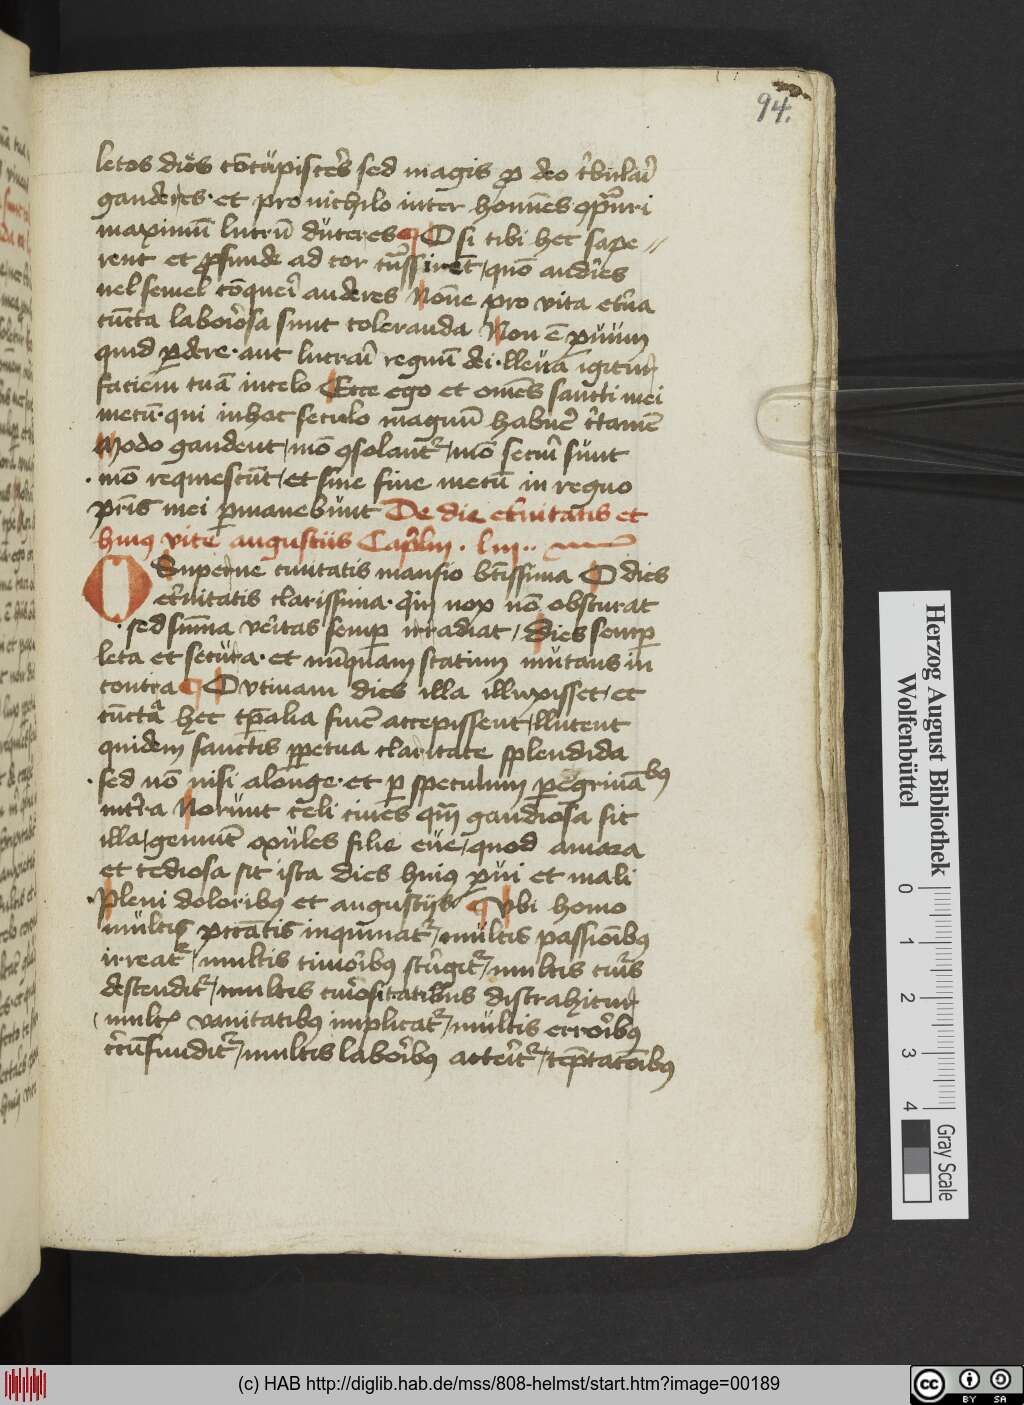 94.
letos dies cōcupisceres sed magis ꝓ deo t'bulari
gauderes et pro nichilo inter homines ꝯputari
maximū lucrū duceres O si tibi hec sape//
rent et ꝓfunde ad cor tn̄ssirēt quō auderes
uel semel cōqueri auderes Nōne pro vita et'na
cūcta laboriosa sunt toleranda Non ē puum
quid ꝑdere aut lucrari regnū dei lleua igitur
faciem tuā in celo Ecce ego et om̄es sancti mei
mecū qui in hoc seculo magnū habuer̄ c'tamē
Modo gaudent mō ꝯsolant̄ mō securi sunt
mō requiescūt et sine fine mecū in regno
pr̄is mei ꝑmanebunt De die et'nitatis et
huiꝰ vite angustiis Cap'lm . lm ..
O Superne ciuitatis mansio bt̄issima O dies
et'nitatis clarissima quā nox nō obscurat
sed sūma veritas semp irradiat / dies semp
leta et secura et nūquam statum mutans in
contra O vtinam dies illa illuxisset et
cūcta hec tp̄alia finē accepissent / llucent
quidem sanctis ꝑpetua claritate splendida
sed nō nisi alonge et ꝑ speculum ꝑegrinātibꝰ
in t'ra Norunt celi ciues qm̄ gaudiosa sit
illa / gemunt exules filie eue / quod amara
et tediosa sit ista dies huiꝰ eui et mali
Pleni doloribꝰ et angustijs Vbi homo
multis pccātis inquinat̄ / multis passionibꝰ
irreat̄ / multis timoribꝰ stringit̄ / multis curis
descendit̄ / multis curiositatibus distrahitur
mult vanitatibꝰ implicat̄ / multis erroribꝰ
c'cūfundit̄ / multis laboribꝰ atterit̄ / tēptatōibꝰ
Herzog August Bibliothek
Wolfenbüttel
0 1 2 3 4
Gray Scale
(c) HAB http://diglib.hab.de/mss/808-helmst/start.htm?image=00189
cc BY SA